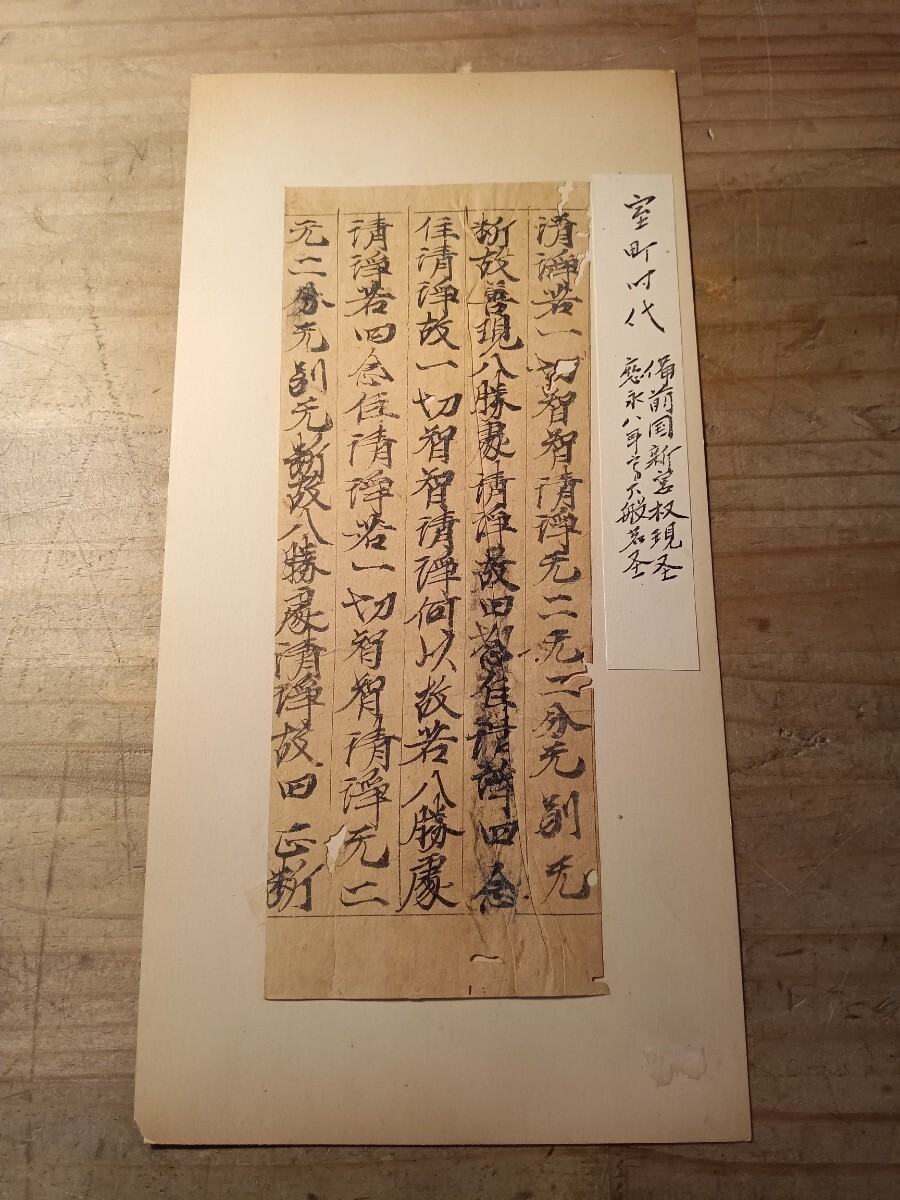 室町时代
備前国新宮权現圣
應永八年写大般若圣
清淨若一切智智清淨无二无二分无别无
断故善現八勝處清淨故四念住清淨四念
住清淨故一切智智清淨何以故若八勝處
清淨若四念住清淨若一切智智清淨无二
无二分无别无断故八勝處清淨故四正断